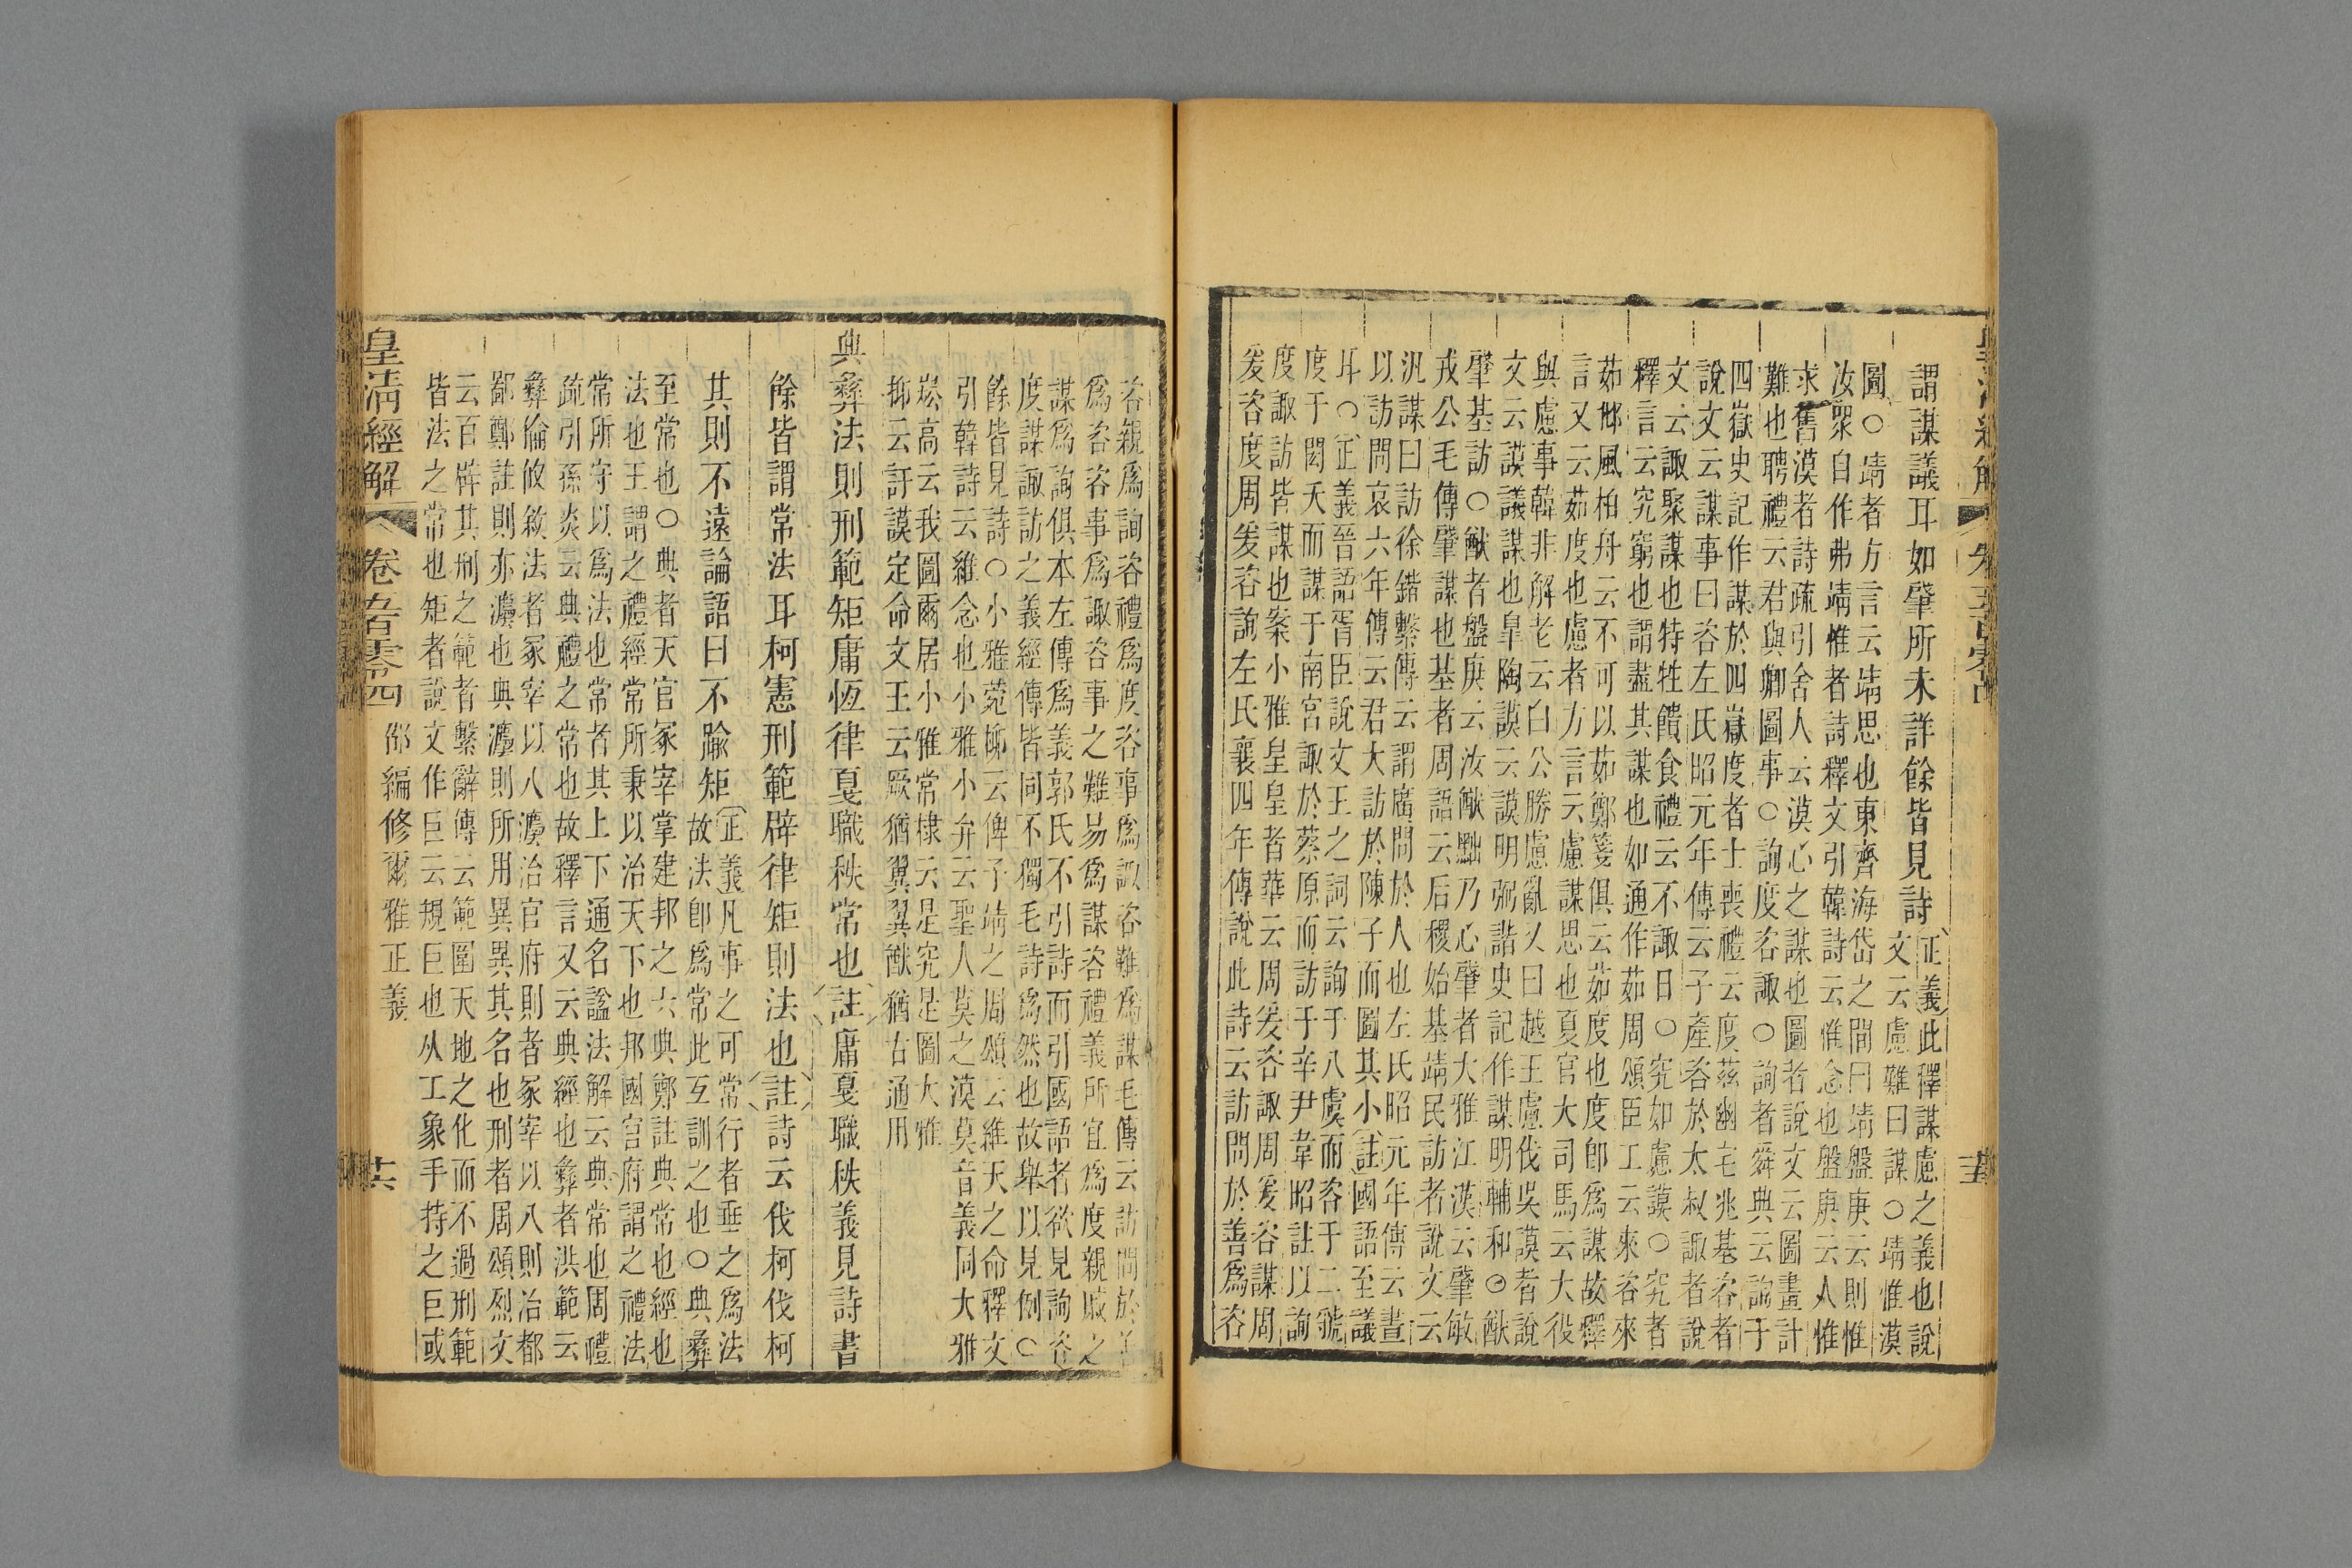 謂謀議耳如肇所未詳餘皆見詩
正義此釋謀慮之義也說
文云慮難曰謀○靖惟漠
圖○靖者方言云靖思也東齊海岱之間曰靖盤庚云則惟
汝衆自作弗靖惟者詩釋文引韓詩云惟念也盤庚云人惟
求舊漠者詩疏引舍人云漠心之謀也圖者說文云圖畫計
難也聘禮云君與卿圖事○詢度咨諏○詢者舜典云詢于
四嶽史記作謀於四嶽度者士喪禮云度茲幽宅兆基咨者
說文云謀事曰咨左氏昭元年傳云子產咨於太叔諏者說
文云諏聚謀也特牲饋食禮云不諏日○究如慮謨○究者
釋言云究窮也謂盡其謀也如通作茹周頌臣工云來咨來
茹邶風柏舟云不可以茹鄭箋俱云茹度也度即爲謀故釋
言又云茹度也慮者方言云慮謀思也夏官大司馬云大役
與慮事韓非解老云白公勝慮亂又曰越王慮伐吳謨者說
文云謨議謀也皐陶謨云謨明弼諧史記作謀明輔和○猷
肇基訪○猷者盤庚云汝猷黜乃心肇者大雅江漢云肇敏
戎公毛傳肇謀也基者周語云后稷始基靖民訪者說文云
汎謀曰訪徐鍇繫傳云謂廣問於人也左氏昭元年傳云晝
以訪問哀六年傳云君大訪於陳子而圖其小註國語至議
耳○正義晉語胥臣說文王之詞云詢于八虞而咨于二虢
度于閎夭而謀于南宮諏於蔡原而訪于辛尹韋昭註以詢
度諏訪皆謀也案小雅皇皇者華云周爰咨諏周爰咨謀周
爰咨度周爰咨詢左氏襄四年傳說此詩云訪問於善爲咨
咨親爲詢咨禮爲度咨事爲諏咨難爲謀毛傳云訪問於善
爲咨咨事爲諏咨事之難易爲謀咨禮義所宜爲度親戚之
謀爲詢俱本左傳爲義郭氏不引詩而引國語者欲見詢咨
度謀諏訪之義經傳皆同不獨毛詩爲然也故舉以見例○
餘皆見詩○小雅菀柳云俾予靖之周頌云維天之命釋文
引韓詩云維念也小雅小弁云聖人莫之漠莫音義同大雅
崧高云我圖爾居小雅常棣云是究是圖大雅
抑云訏謨定命文王云厥猶翼翼猷猶古通用
典彝法則刑範矩庸恆律戛職秩常也註庸戛職秩義見詩書
餘皆謂常法耳柯憲刑範辟律矩則法也註詩云伐柯伐柯
其則不遠論語曰不踰矩
正義凡事之可常行者垂之爲法
故法卽爲常此互訓之也○典彝
至常也○典者天官冢宰掌建邦之六典鄭註典常也經也
法也王謂之禮經常所秉以治天下也邦國官府謂之禮法
常所守以爲法也常者其上下通名謚法解云典常也周禮
疏引孫炎云典禮之常也故釋言又云典經也彝者洪範云
彝倫攸敘法者冢宰以八灋治官府則者冢宰以八則治都
鄙鄭註則亦灋也典灋則所用異異其名也刑者周頌烈文
云百辟其刑之範者繫辭傳云範圍天地之化而不過刑範
皆法之常也矩者說文作巨云規巨也从工象手持之巨或
皇清經解
卷五百零四
邵編修爾雅正義
十六